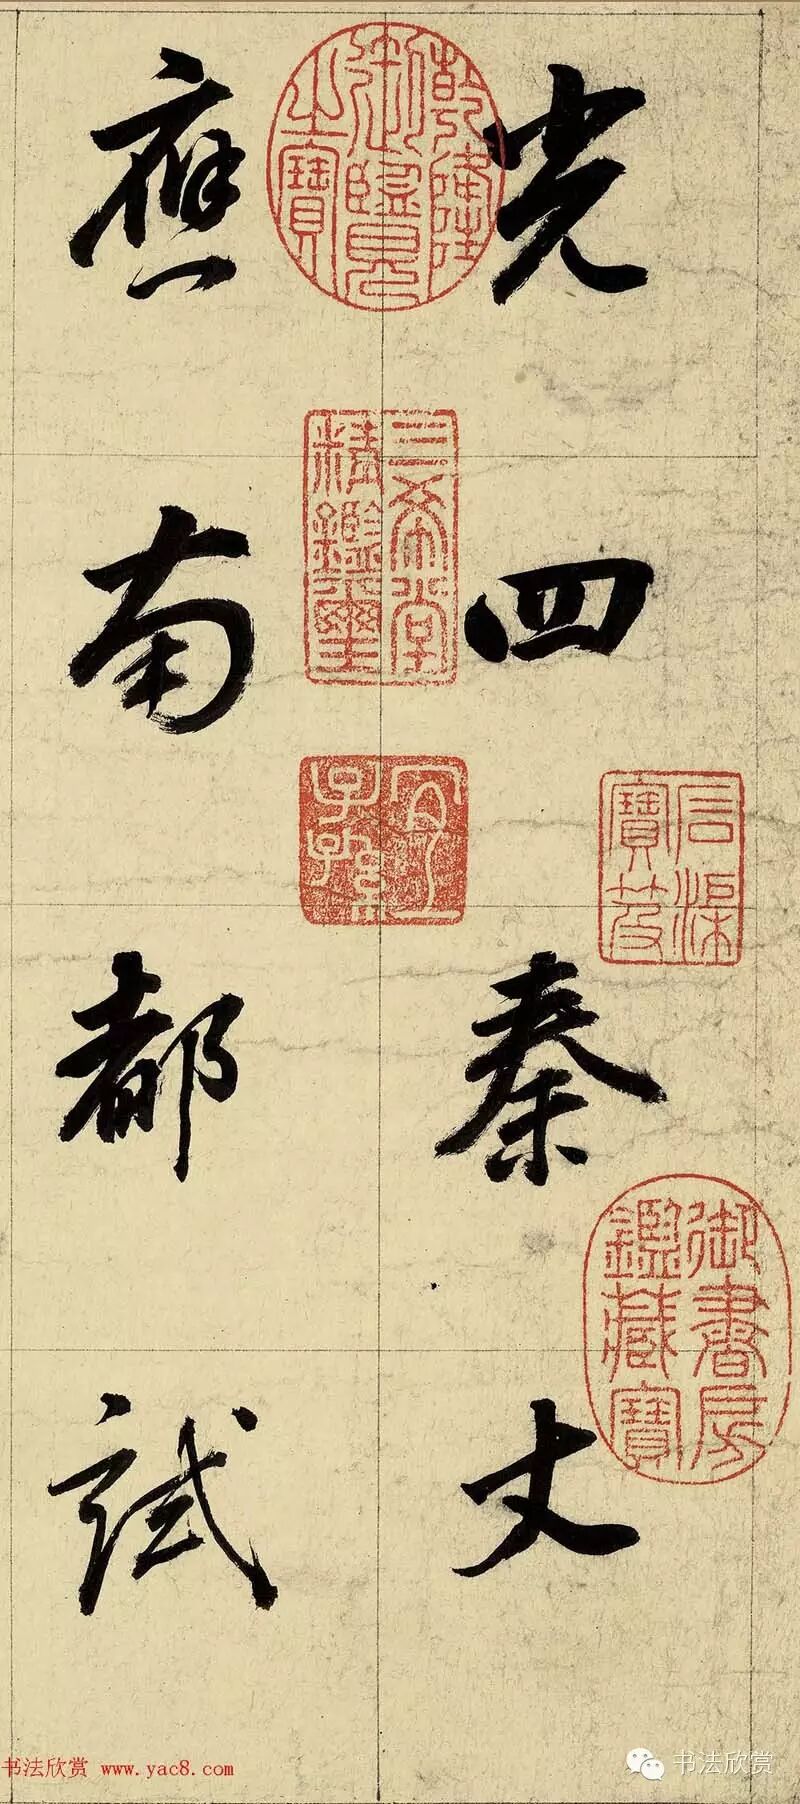 光四秦丈
應南都試
乾隆
御覽
之寶
三希堂
精鑑璽
宜
子孫
石渠
寶笈
御書房
鑑藏寶
书法欣赏 www.yac8.com
书法欣赏